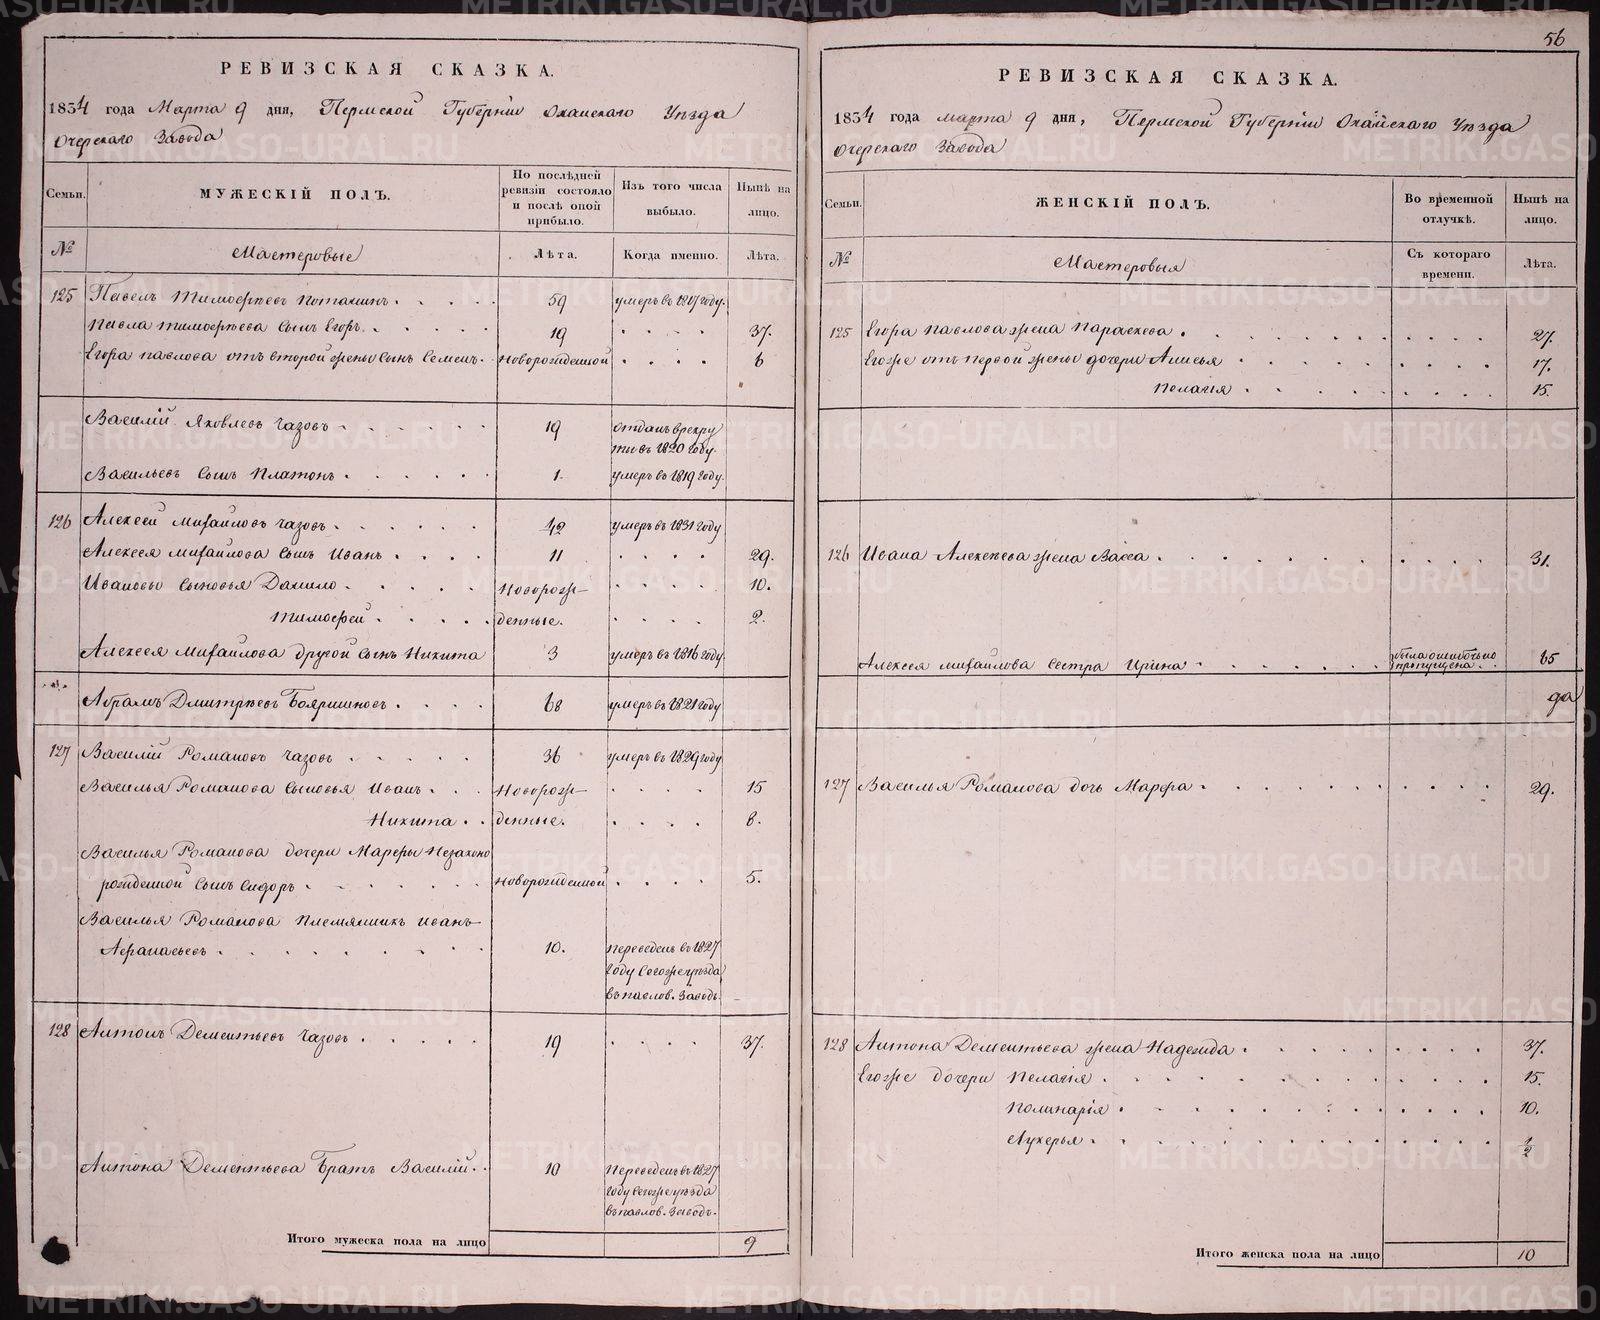 РЕВИЗСКАЯ СКАЗКА.
1834 года Марта 9 дня, Пермской Губерніи Оханскаго Уѣзда
Очерскаго Завода
Семьи.
МУЖЕСКІЙ ПОЛЪ.
По послѣдней ревизіи состояло и послѣ оной прибыло.
Изъ того числа выбыло.
Нынѣ на лицо.
№ Мастеровые Лѣта. Когда именно. Лѣта.
125 Павелъ Тимофѣевъ Потакинъ 59 умеръ въ 1817 году.
Павла Тимофѣева сынъ Егоръ 19 37.
Егора Павлова отъ второй жены сынъ Семенъ Новорожденной 6
Василій Яковлевъ Чазовъ 19 отданъ врекру
ты въ 1820 году.
Васильевъ сынъ Платонъ 1. умеръ въ 1819 году.
126 Алексей Михайловъ Чазовъ 42 умеръ въ 1831 году
Алексея Михайлова сынъ Иванъ 11 29.
Ивановы сыновья Данило Новорож- 10.
Тимофей денные. 2.
Алексея Михайлова другой сынъ Никита 3 умеръ въ 1816 году.
Абрамъ Дмитрѣевъ Бояршиновъ 68 умеръ въ 1821 году
127 Василій Романовъ Чазовъ 36 умеръ въ 1829 году
Василья Романова сыновья Иванъ Новорож- 15
Никита денные. 8.
Василья Романова дочери Марфы Незаконо
рожденной сынъ Сидоръ Новорожденной 5.
Василья Романова Племянникъ Иванъ
Афанасьевъ 10. Переведенъ въ 1827
году Сегоже уѣзда
въ павлов. Заводъ.
128 Антонъ Дементьевъ Чазовъ 19 37.
Антона Дементьева Братъ Василій 10 Переведенъ въ 1827
году Сегоже уѣзда
въ павлов. Заводъ.
Итого мужеска пола на лицо 9
56
РЕВИЗСКАЯ СКАЗКА.
1834 года марта 9 дня, Пермской Губерніи Оханскаго Уѣзда
Очерскаго Завода
Семьи.
ЖЕНСКІЙ ПОЛЪ.
Во временной отлучкѣ.
Нынѣ на лицо.
№ Мастеровыя Съ котораго времени. Лѣта.
125 Егора Павлова жена Параскева 27.
Егоже отъ первой жены дочери Анисья 17.
Пелагія 15.
126 Ивана Алексѣева жена Васса 31.
Алексея Михайлова сестра Ирина была ошибочно пропущена 65
да
127 Василья Романова дочь Марфа 29.
128 Антона Дементьева жена Надежда 37.
Егоже дочери Пелагія 15.
Полинарія 10.
Лукерья 1/2
Итого женска пола на лицо 10
METRIKI.GASO-URAL.RU